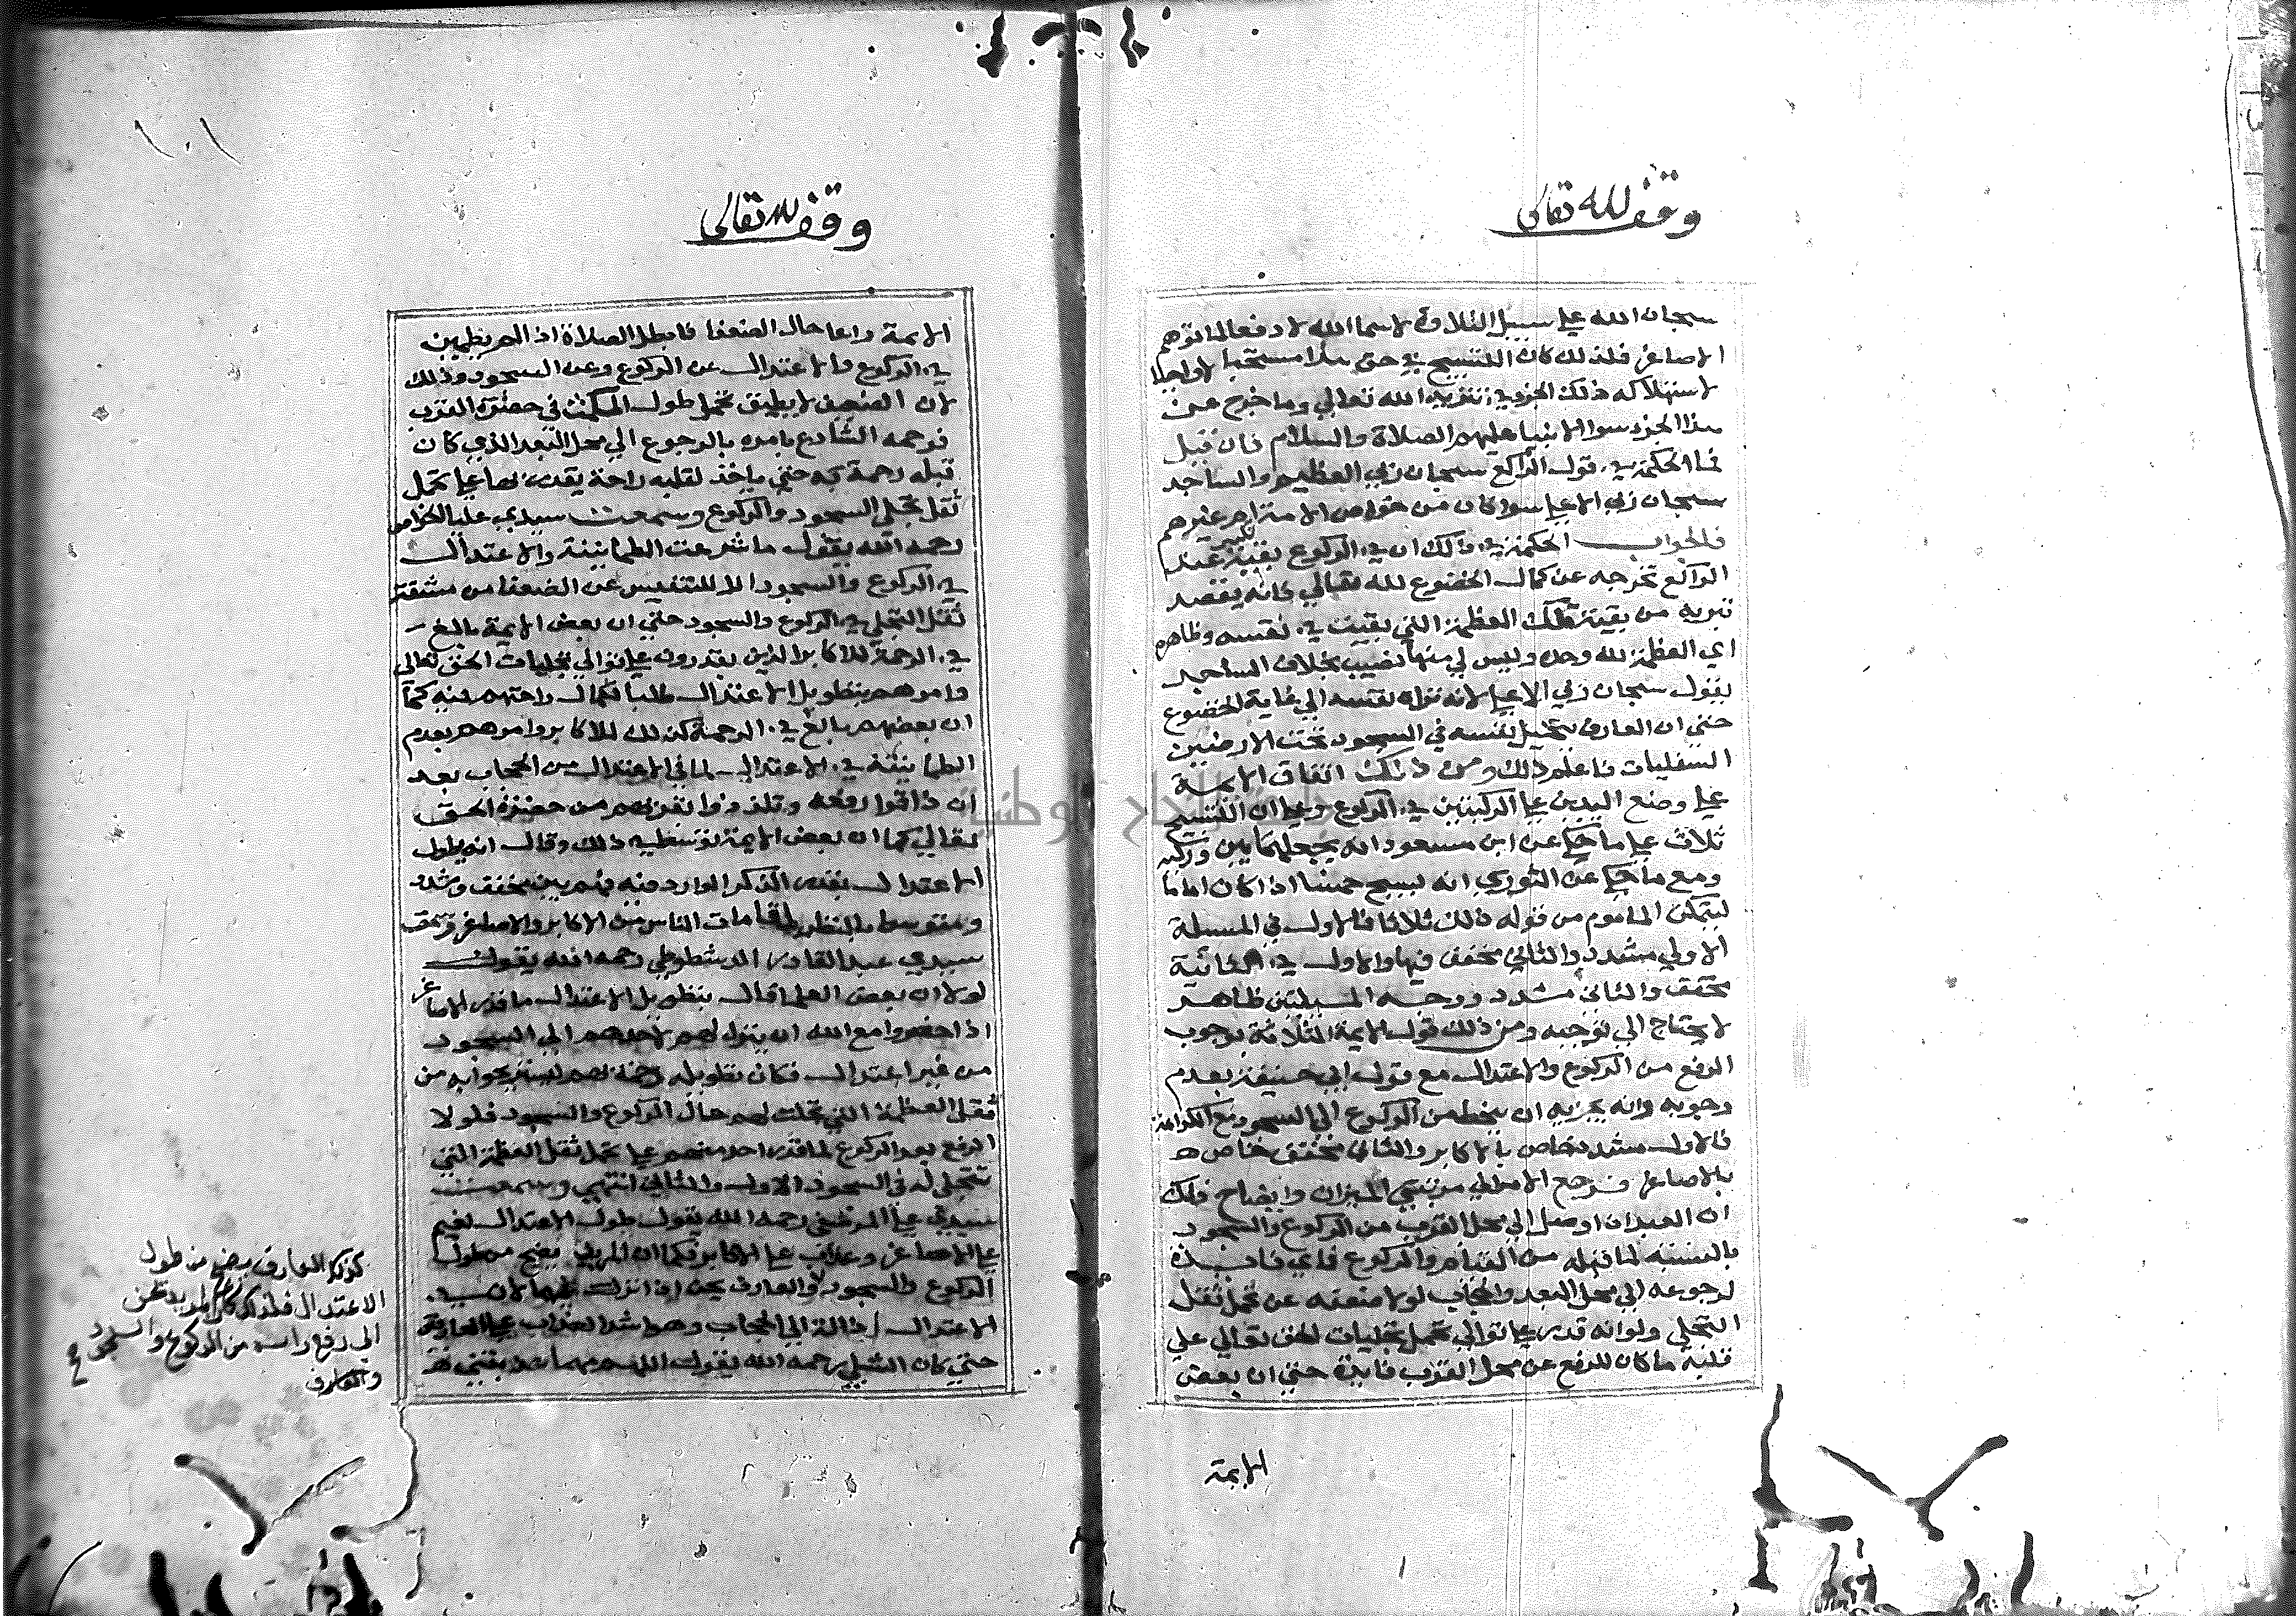 وقف لله تعالى
سبحان الله علي سبيل التلاوة لاسما الله لا دفعا لما توهم
الاصاغر فلذلك كان التسبيح في حق هذا مستحبا لا واجبا
لاستهلاكه ذلك الجزء في تنزيه الله تعالي وما خرج عن
هذا الجزء سوا الانبيا عليهم الصلاة والسلام فان قيل
فما الحكمة في قول الراكع سبحان ربي العظيم والساجد
سبحان ربي الاعلي سوا كان من خواص الامة ام غيرهم
فالجواب الحكمة في ذلك ان في الركوع بقية تكبر عند
الراكع تخرجه عن كمال الخضوع لله تعالي كانه يقصد
تبريه من بقية تلك العظمة التي بقيت في نفسه وظاهره
اي العظمة لله وحده وليس لي منها نصيب بخلاف الساجد
يقول سبحان ربي الاعلي لانه نزل نفسه الي غاية الخضوع
حتي ان العارف يتخيل نفسه في السجود تحت الارضين
السفليات فاعلم ذلك ومن ذلك اتفاق الايمة
علي وضع اليدين علي الركبتين في الركوع وعلي ان التسبيح
ثلاث علي ما حكي عن ابن مسعود انه يجعلهما بين وركبه
ومع ما حكي عن الثوري انه يسبح خمسا اذا كان اماما
ليتمكن الماموم من قوله ذلك ثلاثا فالاول في المسئلة
الاولي مشدد والثاني مخفف فيها والاول في الثانية
مخفف والثاني مشدد ووجه المسيلتين ظاهر
لا يحتاج الي توجيه ومن ذلك قول الايمة الثلاثة بوجوب
الرفع من الركوع والاعتدال مع قول ابي حنيفة بعدم
وجوبه وانه يجزيه ان ينحط من الركوع الي السجود مع الكراهة
فالاول مشدد خاص بالاكابر والثاني مخفف خاص
بالاصاغر فرجع الامر الي مرتبتي الميزان وايضاح ذلك
ان العبد اذا وصل الي محل القرب من الركوع والسجود
بالنسبة لما قبله من القيام والركوع فاي فايدة
لرجوعه الي محل البعد والحجاب لولا ضعفه عن تحمل ثقل
التجلي ولو انه قدر علي توالي تحمل تجليات الحق تعالي علي
قلبه ما كان للرفع عن محل القرب فايدة حتي ان بعض
الايمة
١٠١
وقف لله تعالى
الايمة راعا حال الضعفا فابطل الصلاة اذا لم يطمين
في الركوع والاعتدال عن الركوع وعن السجود وذلك
لان الضعيف لا يطيق تحمل طول المكث في حضرة القرب
فرحمه الشارع بامره بالرجوع الي محل البعد الذي كان
قبله رحمة به حتي ياخذ لقلبه راحة يقدر بها علي تحمل
ثقل تجلي السجود والركوع وسمعت سيدي عليا الخواص
رحمه الله يقول ما شرعت الطمانينة والاعتدال
في الركوع والسجود الا للتنفيس عن الضعفا من مشقة
ثقل التجلي في الركوع والسجود حتي ان بعض الايمة بالغ
في الرحمة للاكابر الذين يقدرون علي توالي تجليات الحق تعالي
وامرهم بتطويل الاعتدال طلبا لكمال راحتهم فيه كما
ان بعضهم بالغ في الرحمة كذلك للاكابر وامرهم بعدم
الطمانينة في الاعتدال لما في الاعتدال من الحجاب بعد
ان ذاقوا رفعه وتلذذوا بقربهم من حضرة الحق
تعالي كما ان بعض الايمة توسط في ذلك وقال انه يطول
الاعتدال بقدر الذكر الوارد فيه فهم بين مخفف ومشدد
ومتوسط بالنظر لمقامات الناس من الاكابر والاصاغر وسمعت
سيدي عبد القادر الدشطوطي رحمه الله يقول
لولا ان بعض العلما قال بتطويل الاعتدال ما قدر الاصاغر
اذا حضروا مع الله ان ينزل لهم لاحدهم الي السجود
من غير اعتدال فكان تطويله رحمة بهم ليستريحوا به من
ثقل العظمة التي تجلت لهم حال الركوع والسجود فلولا
الرفع بعد الركوع لما قدر احد منهم علي تحمل ثقل العظمة التي
تتجلي له في السجود الاول والثاني انتهي وسمعت
سيدي علي المرصفي رحمه الله يقول طول الاعتدال نعيم
علي الاصاغر وعذاب علي الاكابر فكما ان المريد يضج من طول
الركوع والسجود والعارف يحن اذا نزل لهما لان في
الاعتدال ازالة الي الحجاب وهو اشد العذاب علي العارف
حتي كان الشبلي رحمه الله يقول اللهم مهما عذبتني
كذلك العارف يضج من طول
الاعتدال فلذلك كان المريد يحن
الي رفع راسه من الركوع والسجود صح
والعارف